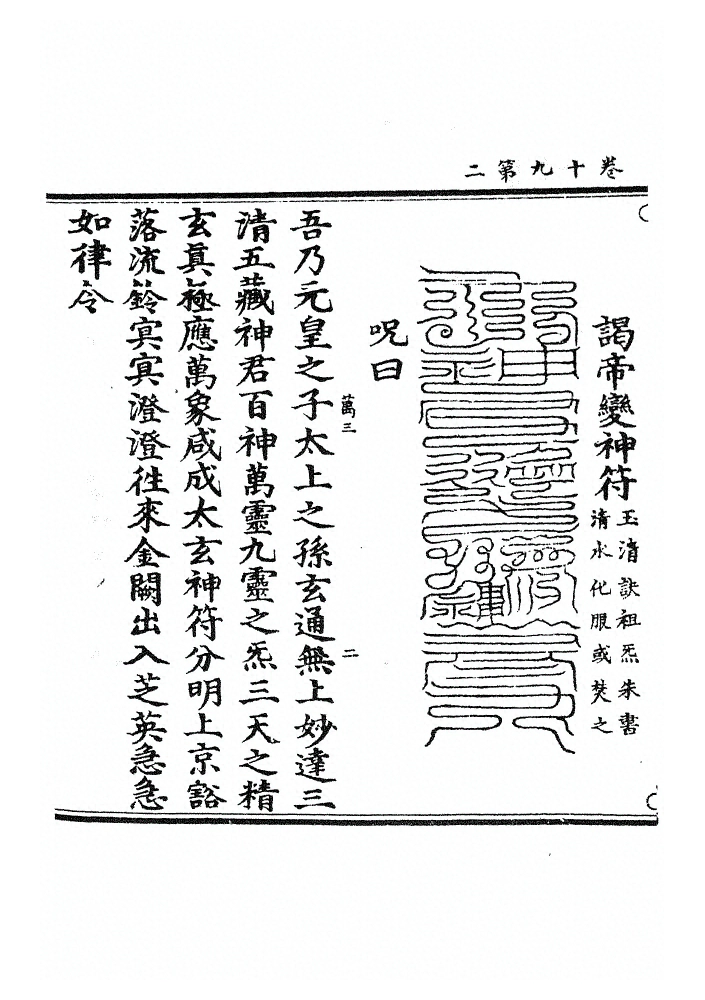 卷十九第二
謁帝變神符
玉清訣祖炁朱書
清水化服或焚之
呪曰
萬三
二
吾乃元皇之子太上之孫玄通無上妙達三
清五藏神君百神萬靈九靈之炁三天之精
玄眞極應萬象咸成太玄神符分明上京豁
落流鈴㝠㝠澄澄徃來金闕出入芝英急急
如律令